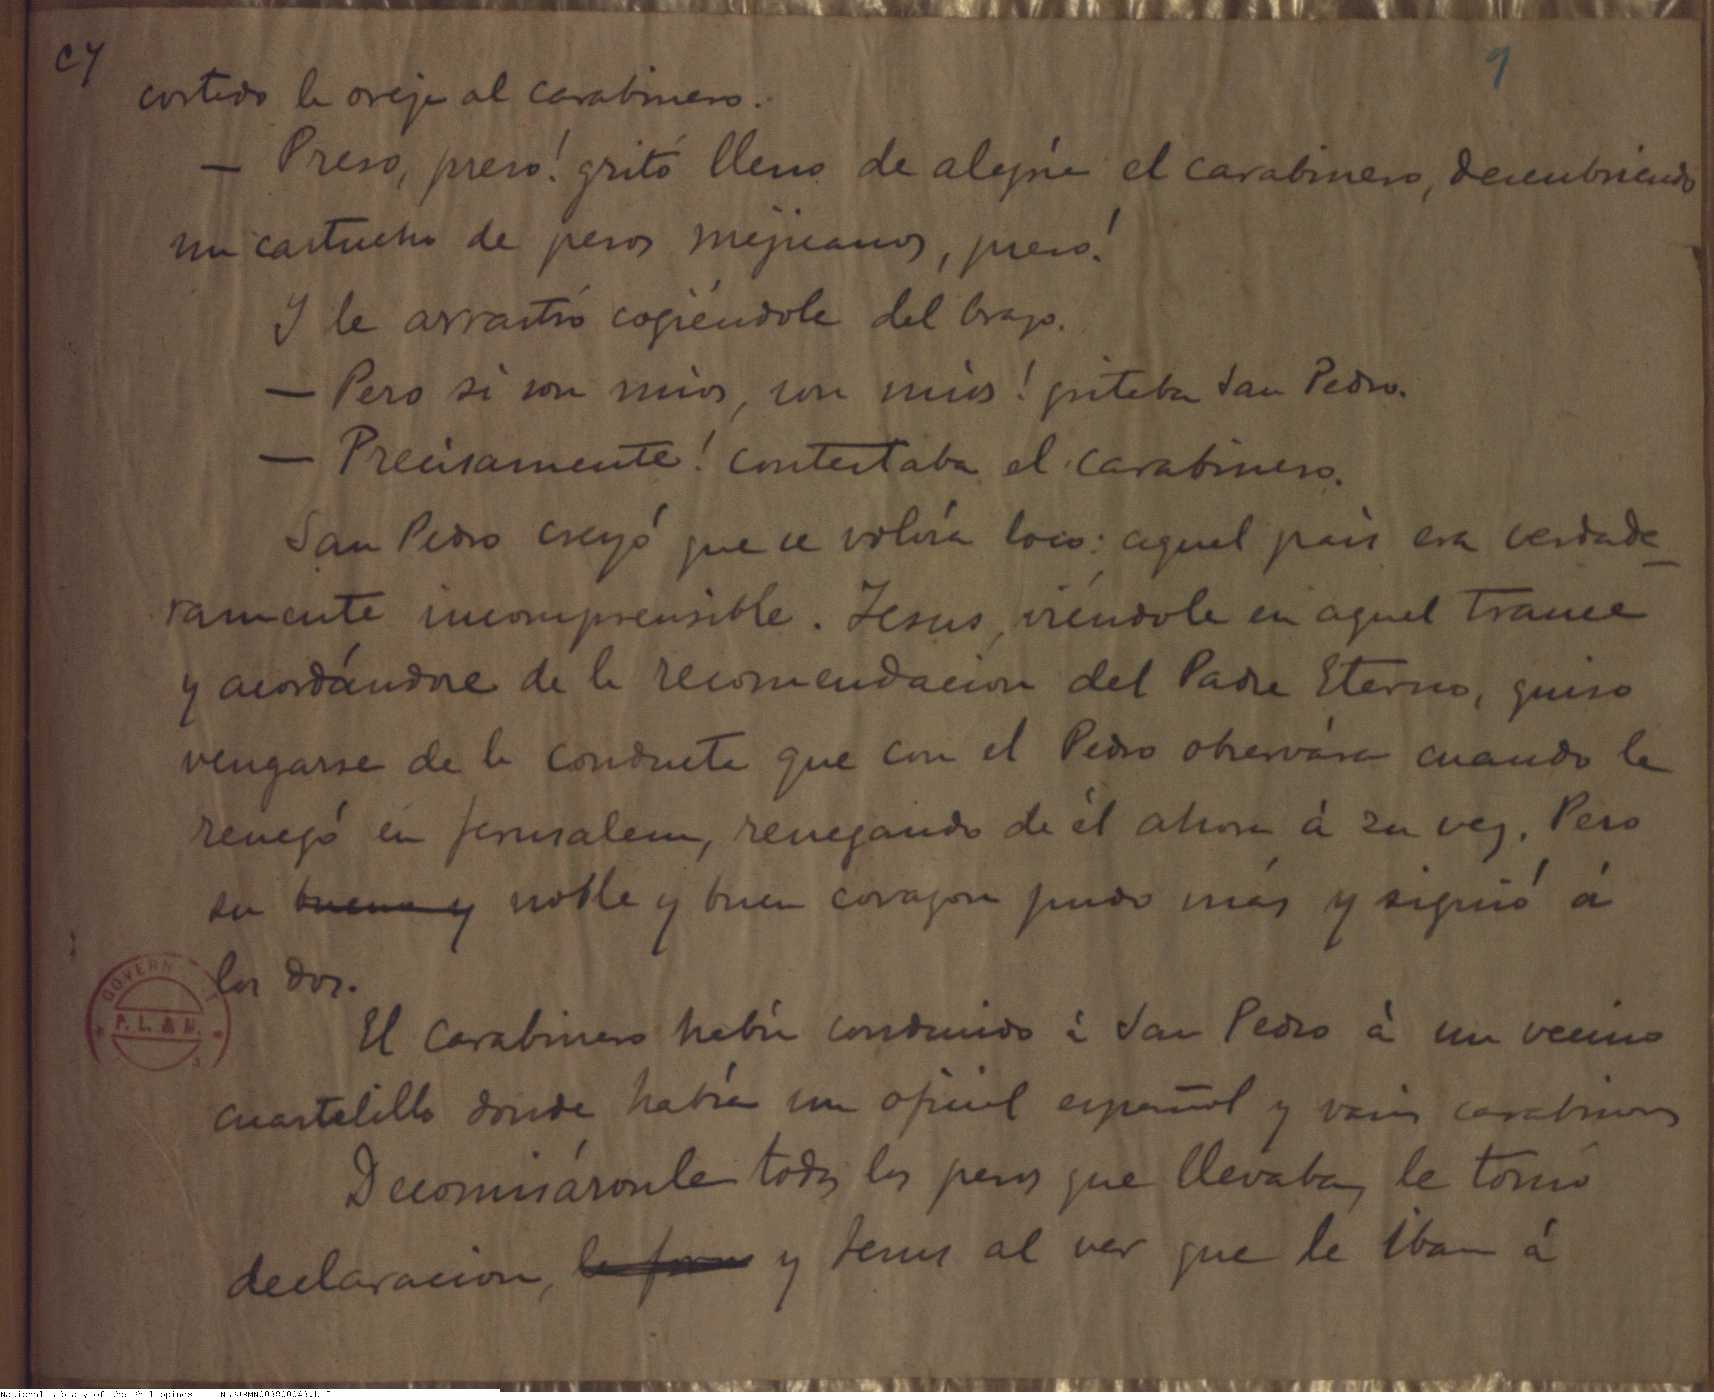 C7
9
cortado la oreja al carabinero.
— Preso, preso! gritó lleno de alegría el carabinero, descubriendo
un cartucho de pesos mejicanos, preso!
Y le arrastró cogiéndole del brazo.
— Pero si son mios, son mios! gritaba San Pedro.
— Precisamente! contestaba el carabinero.
San Pedro creyó que se volvía loco: aquel pais era verdade_
ramente incomprensible. Jesus, viéndole en aquel trance
y acordándose de la recomendacion del Padre Eterno, quiso
vengarse de la conducta que con el Pedro observára cuando le
renegó en Jerusalem, renegando de él ahora á su vez. Pero
su buena y noble y buen corazon pudo más y siguió á
los dos.
El carabinero habia conducido á San Pedro á un vecino
cuartelillo donde había un oficial español y varios carabineros
Decomisáronle todos los pesos que llevaba, le tomó
declaracion, y Jesus al ver que le iban á
GOVERN
P. L. & M.